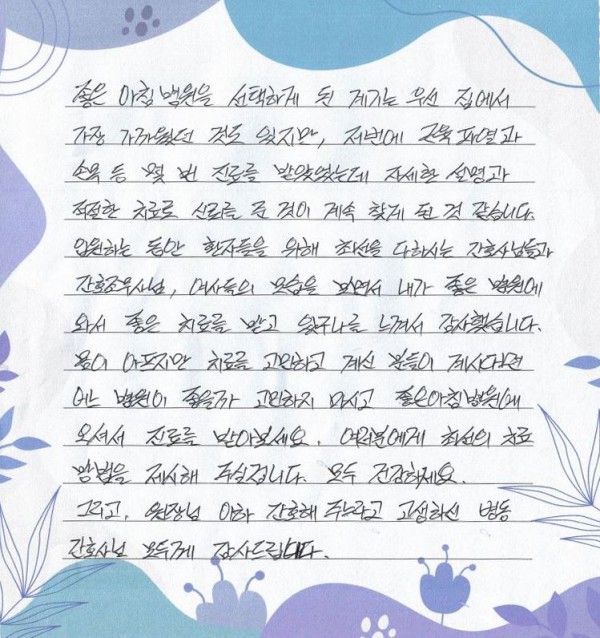 좋은 아침 병원을 선택하게 된 계기는 우선 집에서
가장 가까웠던 것도 있지만, 저번에 근육 파열과
손목 등 몇 번 진료를 받았었는데 자세한 설명과
적절한 치료로 신뢰를 준 것이 계속 찾게 된 것 같습니다.
입원하는 동안 환자들을 위해 최선을 다하시는 간호사님들과
간호조무사님, 여사들의 모습을 보면서 내가 좋은 병원에
와서 좋은 치료를 받고 있구나를 느껴서 감사했습니다.
몸이 아프지만 치료를 고민하고 계신 분들이 계시다면
어느 병원이 좋을까 고민하지 마시고 좋은아침병원에
오셔서 진료를 받아보세요. 여러분에게 최선의 치료
방법을 제시해 주실겁니다. 모두 건강하세요.
그리고, 원장님 이하 간호해 주느라고 고생하신 병동
간호사님 모두께 감사드립니다.